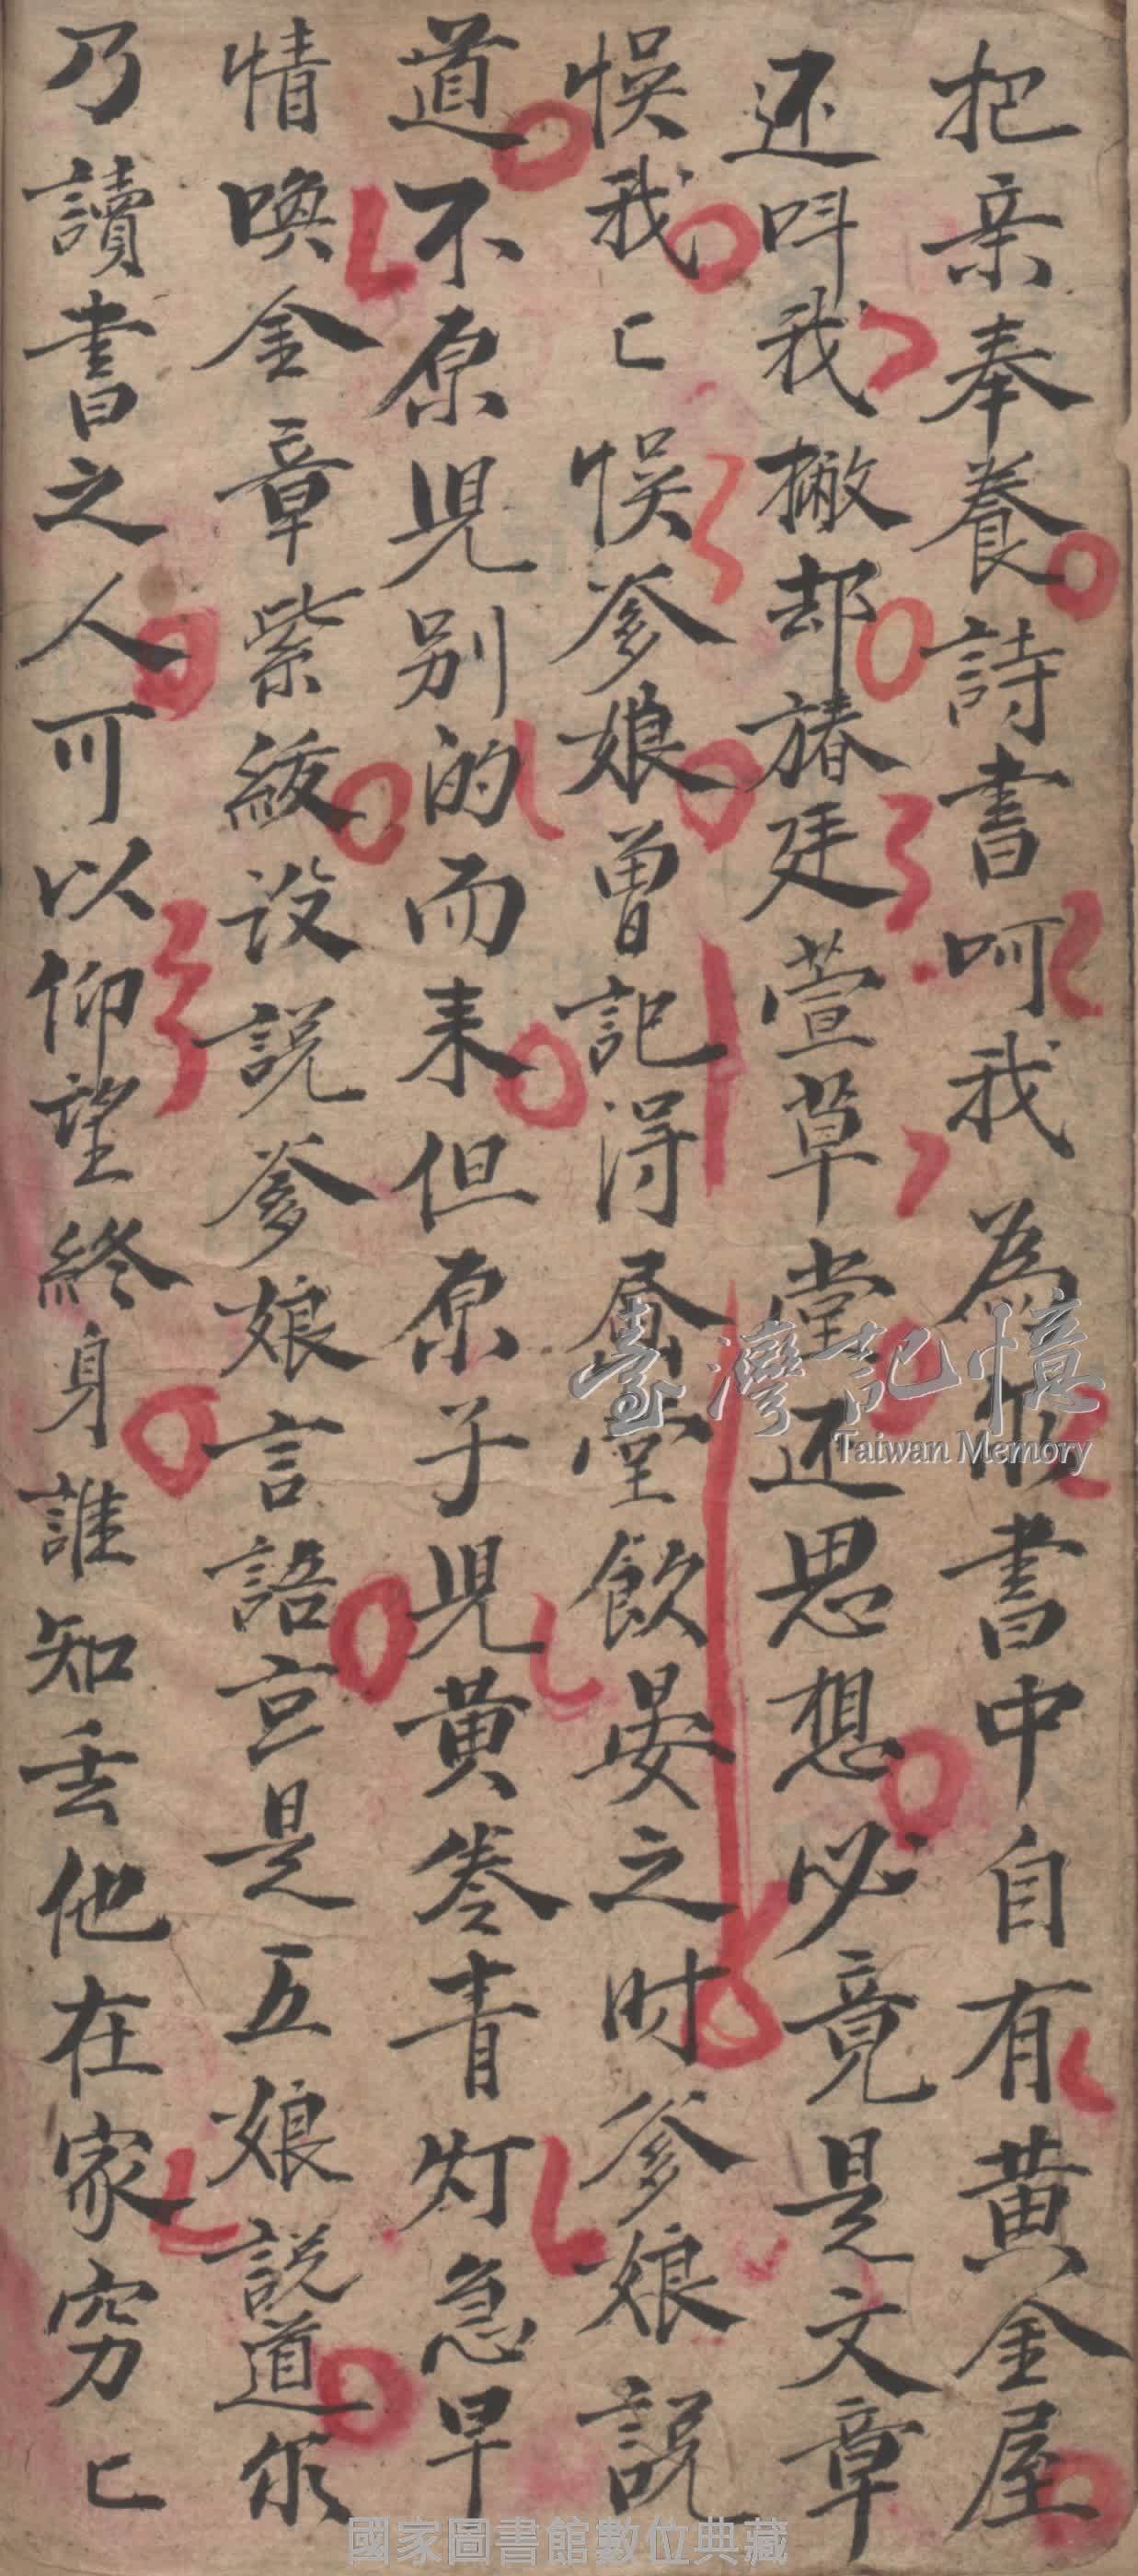 把亲奉養詩書呵我為你書中自有黃金屋
还呌我撇却椿廷萱草堂还思想必竟是文章
悮我匕悮爹娘曾記得臨堂飲晏之时爹娘説
道不原児别的而来但原子児黄卷青灯急早
情喚金章紫綬設説爹娘言語言是五娘説道伱
乃讀書之人可以仰望終身誰知丢他在家穷匕
臺灣記憶
Taiwan Memory
國家圖書館數位典藏